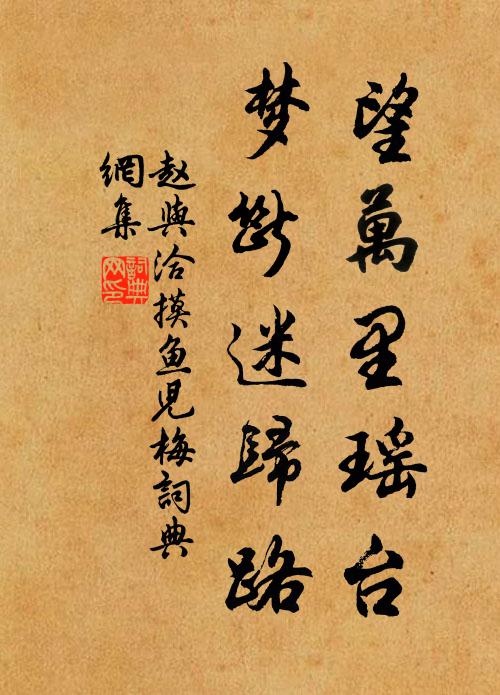 望萬里瑶台
梦斷迷歸路
赵與洽摸鱼児梅詞典
網集
詞典
网印